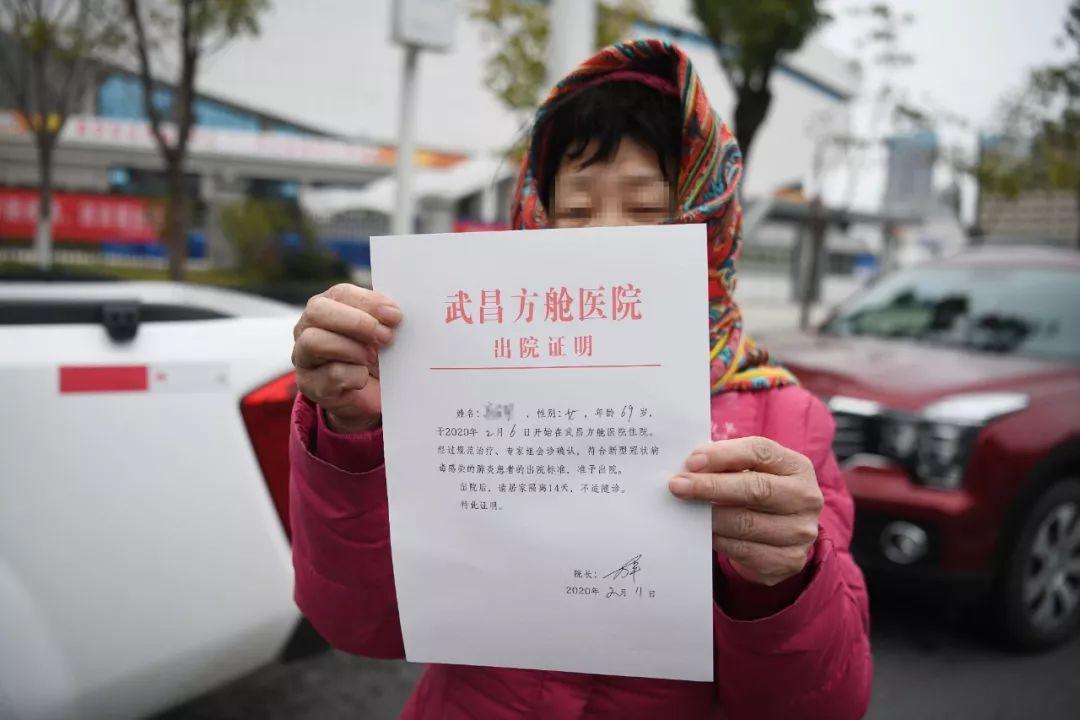 武昌方舱医院
出院证明
姓名: ，性别:女，年龄69岁，
于2020年2月6日开始在武昌方舱医院住院。
经过规范治疗、专家组会诊确认，符合新型冠状病
毒感染的肺炎患者的出院标准，准予出院。
出院后，请居家隔离14天，不适随诊。
特此证明。
院长:
2020年2月11日